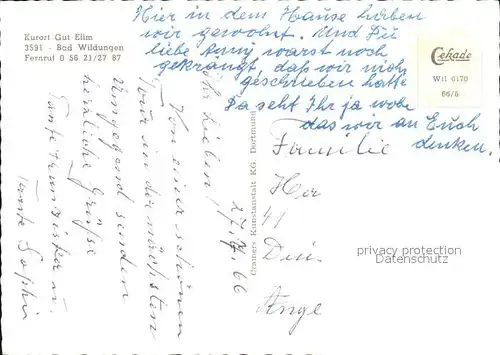 Kurort Gut Elim
3591 - Bad Wildungen
Fernruf 0 56 21/27 87
Hier in dem Hause haben
wir gewohnt. Und Du
liebe Anny warst noch
gekränkt daß wir nicht
geschrieben hatte
Da seht Ihr ja wohl
das wir an Euch
denken.
Cekade
Wil 0170
66/6
27. 66
Ihr Lieben!
Von einer schönen
in der nächsten
Umgebung senden
herzliche Grüße
Tante u.
Tante Sophi
Cramers Kunstanstalt KG. Dortmund
Familie
Her
41
Dui.
Ange
privacy protection
Datenschutz